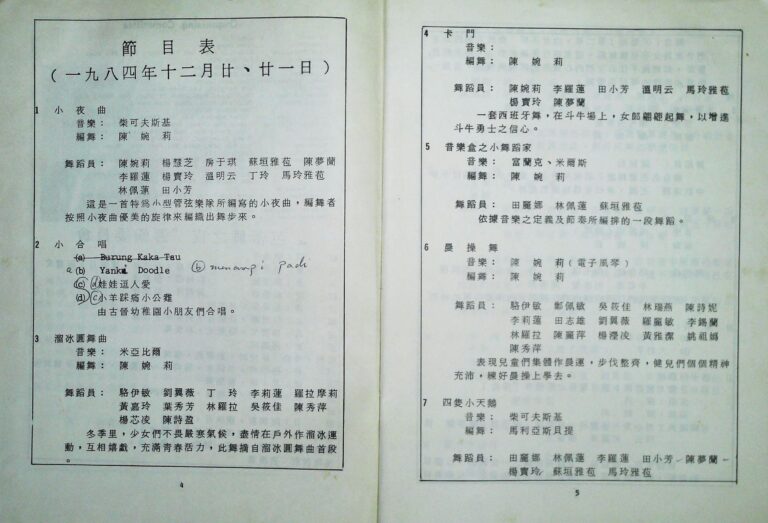 節目表
(一九八四年十二月廿、廿一日)
1 小夜曲
音樂: 柴可夫斯基
編舞: 陳婉莉
舞蹈員: 陳婉莉 楊慧芝 房于琪 蘇垣雅菈 陳夢蘭
李羅蓮 楊寶玲 溫明云 丁玲 馬玲雅菈
林佩蓮 田小芳
這是一首特為小型管弦樂隊所編寫的小夜曲,編舞者
按照小夜曲優美的旋律來編織出舞步來。
2 小合唱
(a) Burung Kaka Tau
a (b) Yanki Doodle (b) menanpi padi
(c) d 娃娃逗人愛
(d) c 小羊踩痛小公雞
由古晉幼稚園小朋友們合唱。
3 溜冰圓舞曲
音樂: 米亞比爾
編舞: 陳婉莉
舞蹈員: 駱伊敏 劉翼薇 丁玲 李莉蓮 羅拉摩莉
黃嘉玲 葉秀芳 林羅拉 吳筱佳 陳秀萍
楊芯凌 陳詩盈
冬季里,少女們不畏嚴寒氣候,盡情在戶外作溜冰運
動,互相嬉戲,充滿青春活力,此舞摘自溜冰圓舞曲首段
。
4
4 卡門
音樂:
編舞: 陳婉莉
舞蹈員: 陳婉莉 李羅蓮 田小芳 溫明云 馬玲雅菈
楊寶玲 陳夢蘭
一套西班牙舞,在斗牛場上,女郎翩翩起舞,以增進
斗牛勇士之信心。
5 音樂盒之小舞蹈家
音樂: 富蘭克、米爾斯
編舞: 陳婉莉
舞蹈員: 田麗娜 林佩蓮 蘇垣雅菈
依據音樂之定義及節奏所編排的一段舞蹈。
6 晨操舞
音樂: 陳婉莉(電子風琴)
編舞: 陳婉莉
舞蹈員: 駱伊敏 鄭佩敏 吳筱佳 林瑞燕 陳詩妮
李莉蓮 田志雄 劉翼薇 羅麗敏 李錫蘭
林羅拉 陳麗萍 楊瀅凌 黃雅潔 姚祖嫣
陳秀萍
表現兒童們集體作晨運,步伐整齊,健兒們個個精神
充沛,練好晨操上學去。
7 四隻小天鵝
音樂: 柴可夫斯基
編舞: 馬利亞斯貝提
舞蹈員: 田麗娜 林佩蓮 李羅蓮 田小芳 陳夢蘭
楊寶玲 蘇垣雅菈 馬玲雅菈
5